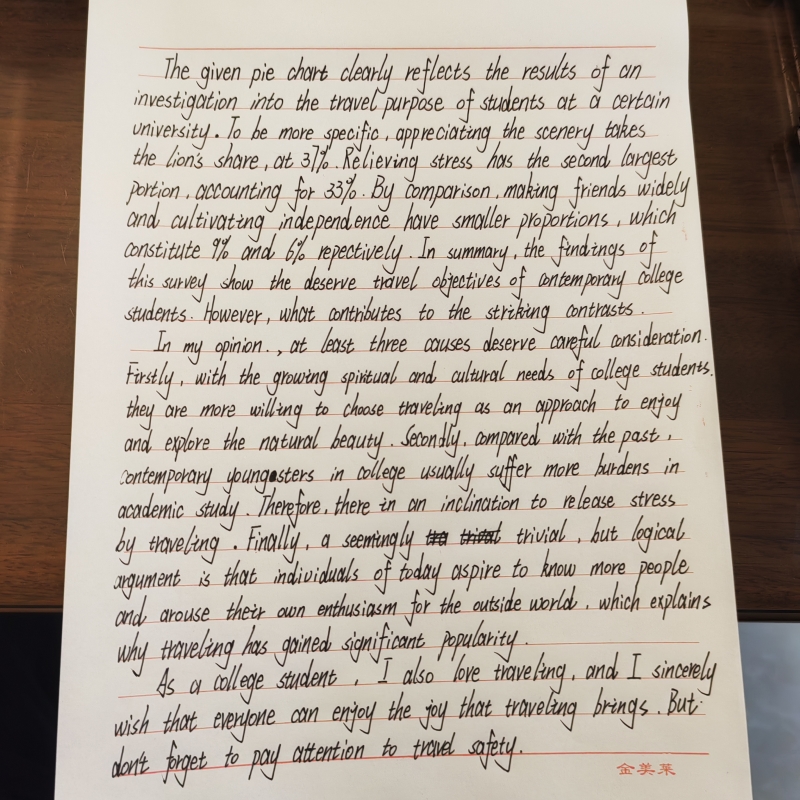 The given pie chart clearly reflects the results of an
investigation into the travel purpose of students at a certain
university. To be more specific, appreciating the scenery takes
the lion's share, at 37%. Relieving stress has the second largest
portion, accounting for 33%. By comparison, making friends widely
and cultivating independence have smaller proportions, which
constitute 9% and 6% repectively. In summary, the findings of
this survey show the deserve travel objectives of contemporary college
students. However, what contributes to the striking contrasts.
In my opinion., at least three causes deserve careful consideration.
Firstly, with the growing spiritual and cultural needs of college students.
they are more willing to choose traveling as an approach to enjoy
and explore the natural beauty. Secondly, compared with the past,
contemporary youngsters in college usually suffer more burdens in
academic study. Therefore, there in an inclination to release stress
by traveling. Finally, a seemingly trivial, but logical
argument is that individuals of today aspire to know more people
and arouse their own enthusiasm for the outside world, which explains
why traveling has gained significant popularity.
As a college student, I also love traveling, and I sincerely
wish that everyone can enjoy the joy that traveling brings. But
don't forget to pay attention to travel safety.
金美莱